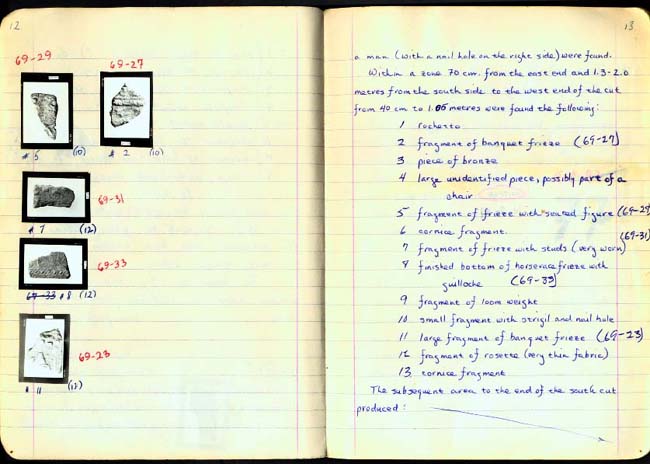 12
69-29
69-27
# 5 (10)
# 2 (10)
69-31
# 7 (12)
69-33
69-33 # 8 (12)
69-23
# 11 (12)
13
a man (with a nail hole on the right side) were found.
Within a zone 70 cm. from the east end and 1.3-2.0
metres from the south side to the west end of the cut
from 40 cm to 1.05 metres were found the following:
1 rochetto
2 fragment of banquet frieze (69-27)
3 piece of bronze
4 large unidentified piece, possibly part of a
chair
5 fragment of frieze with seated figure (69-29)
6 cornice fragment.
7 fragment of frieze with studs (very worn) (69-31)
8 finished bottom of horserace frieze with
guilloche (69-33)
9 fragment of loom weight
10 small fragment with strigil and nail hole
11 large fragment of banquet frieze (69-23)
12 fragment of rosette (very thin fabric)
13 cornice fragment
The subsequent area to the end of the south cut
produced: